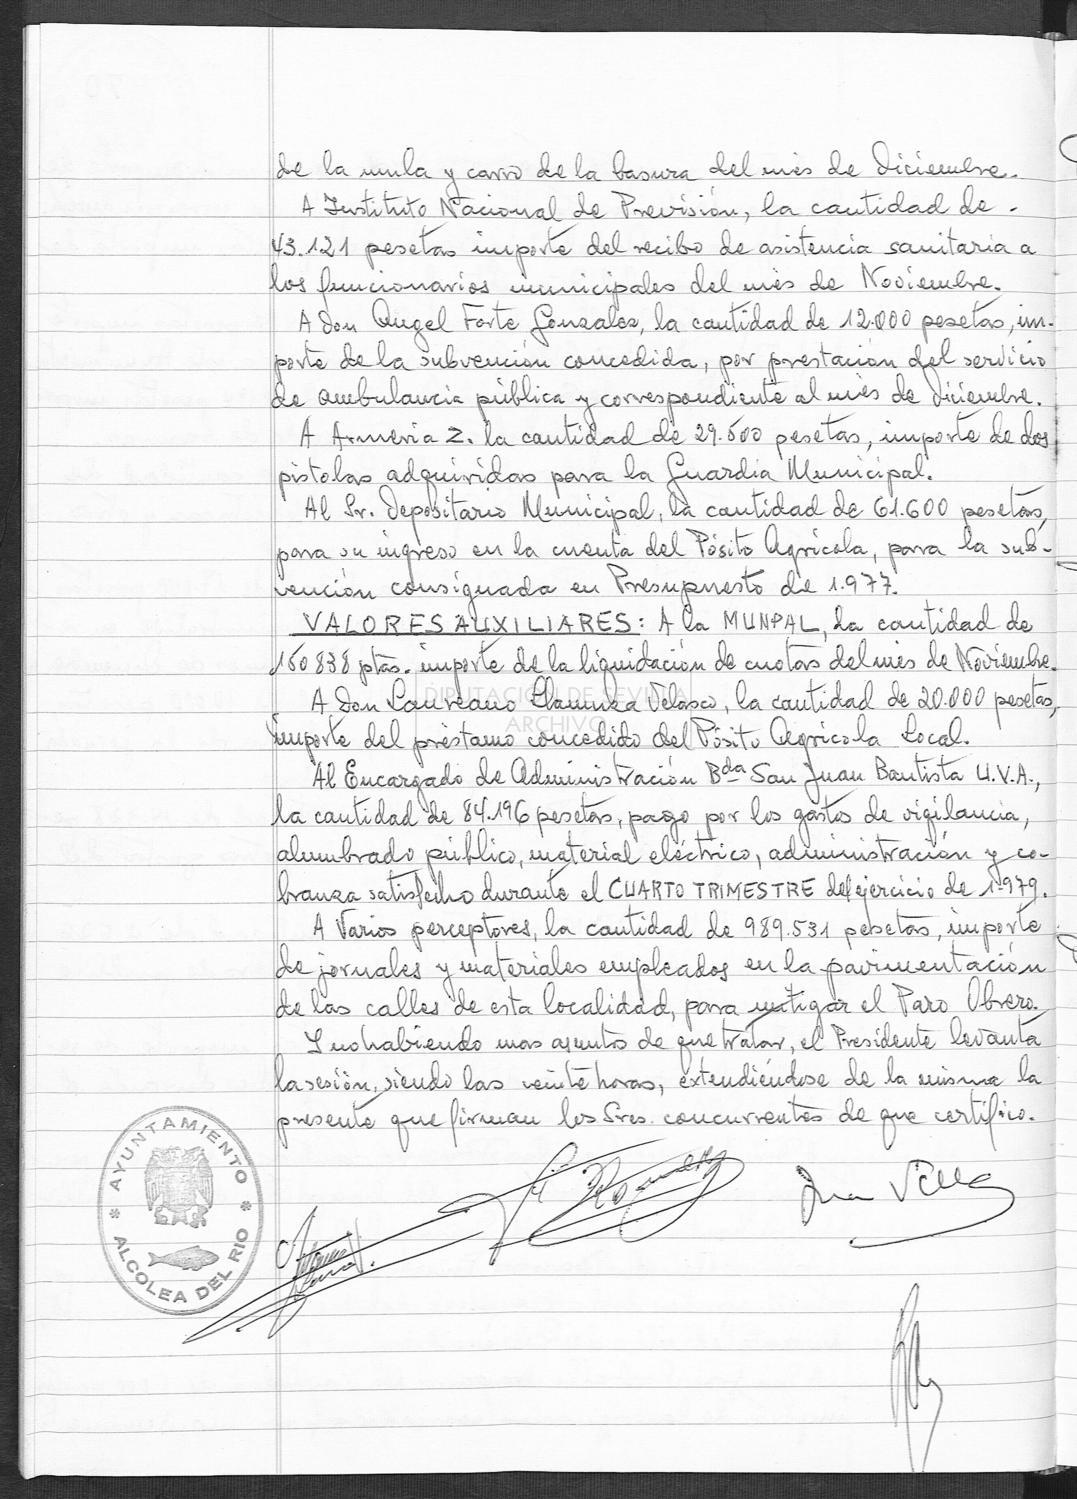 de la mula y carro de la basura del mes de Diciembre.
A Instituto Nacional de Previsión, la cantidad de -
43.121 pesetas importe del recibo de asistencia sanitaria a
los funcionarios municipales del mes de Noviembre.
A Don Angel Forte Gonzalez, la cantidad de 12.000 pesetas, im-
porte de la subvención concedida, por prestación del servicio
de ambulancia pública y correspondiente al mes de Diciembre.
A Armeria Z. la cantidad de 29.500 pesetas, importe de dos
pistolas adquiridas para la Guardia Municipal.
Al Sr. Depositario Municipal, la cantidad de 61.600 pesetas,
para su ingreso en la cuenta del Pósito Agrícola, para la sub-
vención consignada en Presupuesto de 1.977.
VALORES AUXILIARES: A la MUNPAL, la cantidad de
150838 ptas. importe de la liquidación de cuotas del mes de Noviembre.
A Don Laureano Velasco, la cantidad de 20.000 pesetas,
importe del préstamo concedido del Pósito Agrícola Local.
Al Encargado de Administración Bda San Juan Bautista U.V.A.,
la cantidad de 84.196 pesetas, pago por los gastos de vigilancia,
alumbrado público, material eléctrico, administración y co-
branza satisfecho durante el CUARTO TRIMESTRE del ejercicio de 1.979.
A Varios perceptores, la cantidad de 989.531 pesetas, importe
de jornales y materiales empleados en la pavimentación
de las calles de esta localidad, para mitigar el Paro Obrero.
Y no habiendo mas asuntos de que tratar, el Presidente levanta
la sesión, siendo las veinte horas, extendiéndose de la misma la
presente que firman los Sres. concurrentes de que certifico.
DIPUTACIÓN DE SEVILLA
ARCHIVO
AYUNTAMIENTO
ALCOLEA DEL RIO